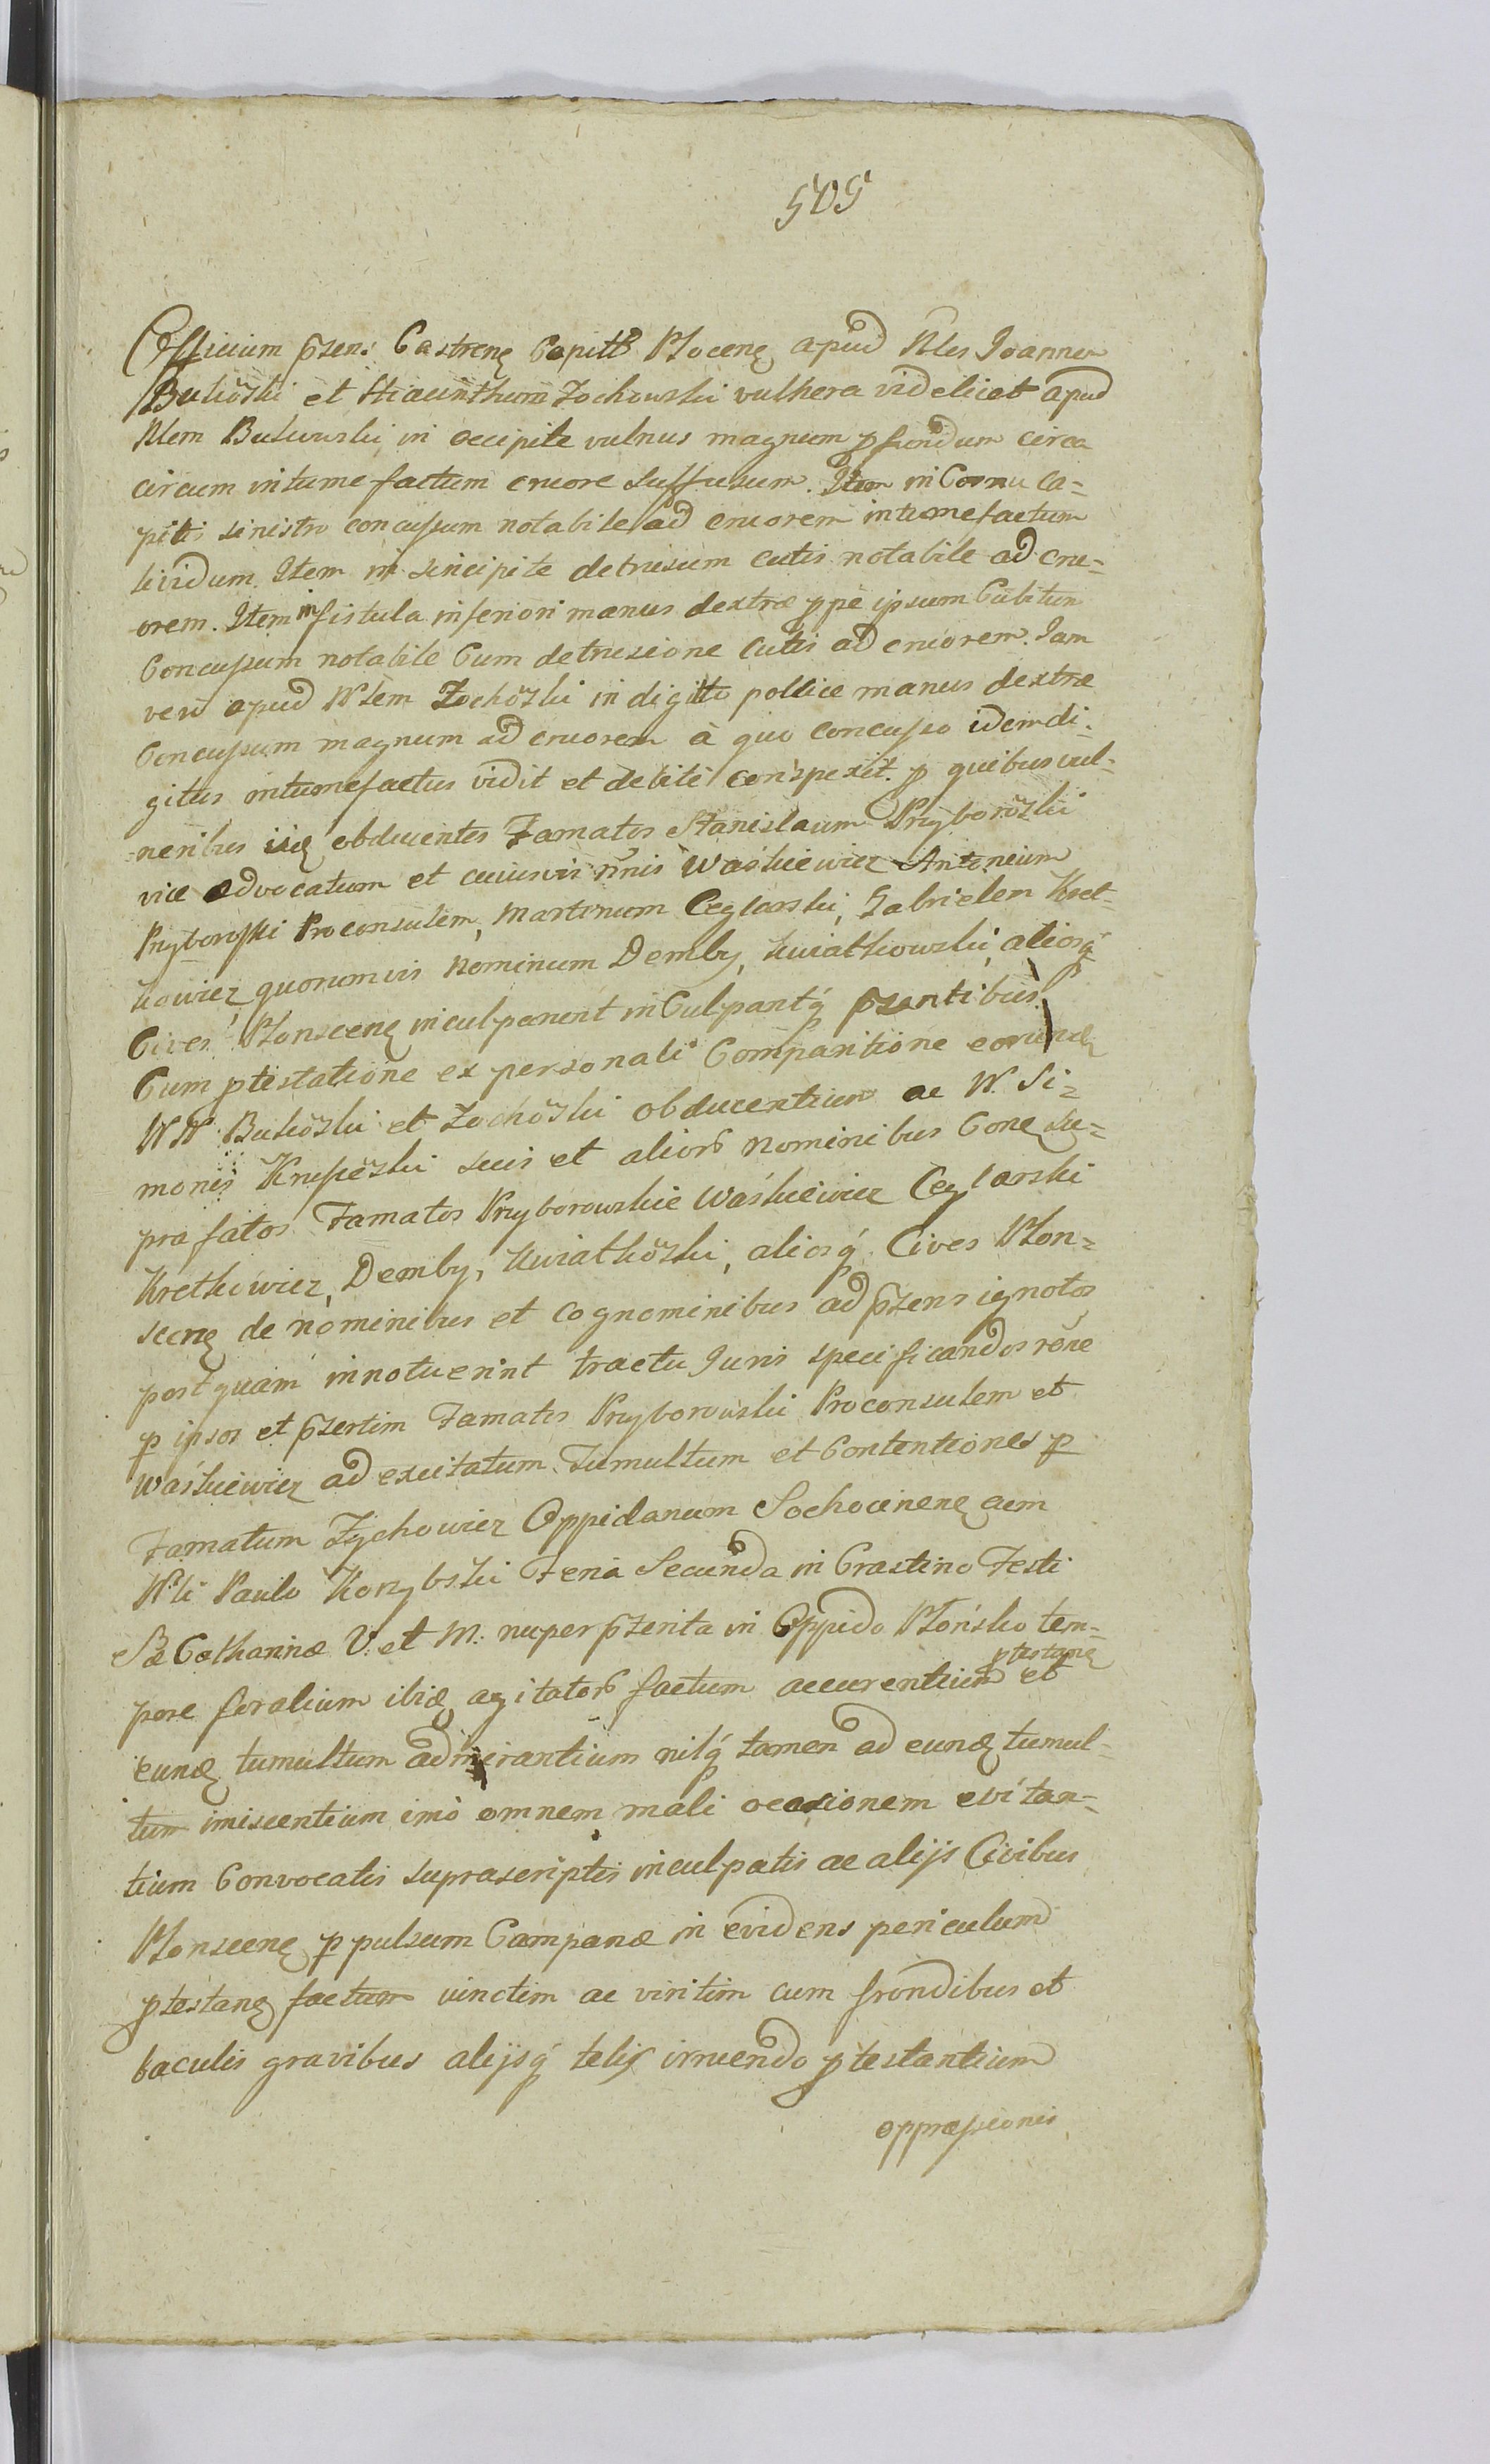 505
Officium pzens Castrenẽ Capitle Plocenẽ apud Nles Joannem
Bukoski et Hiacinthum Zochowski vulnera videlicet apud
Nlem Bukowski in occipite vulnus magnum pfundum circa
circum intumefactum cruore suffusum. Item in Cornu Ca=
pitis sinistro concussum notabile ad cruorem intumefactum
lividum. Item in sincipite detrusum cutis notabile ad cru=
orem. Item in fistula inferiori manus dextræ ppe ipsum Cubitum
Concussum notabile Cum detrusione Cutis ad cruorem. Jam
vero apud Nlem Zochoski in digito pollice manus dextræ
Concussum magnum ad cruorem à quo concusso idem di=
gitus intumefactus vidit et debite conspexit. p quibus vul=
neribus iidẽ obducentes Famatos Stanislaum Przyboroski
vice advocatum et cuiusvis nñis Waśkiewicz Antonium
Przyborofski Proconsulem, Martinum Ceglarski, Gabrielem Kret=
kowicz, quorumvis Nominum Demby, Kwiatkowski, aliosq́
Cives Plonscenẽ inculparunt inCulpantq́ pzentibus.
Cum ptestatione ex personali Comparitione eorundẽ
NN: Bukoski et Zochoski obducentium ac N. Si=
monis Krupeski suis et alior nominibus Conẽ Su=
pra fatos Famatos Przyborowskie Waśkiewicz Ceglarski
Kretkowicz, Demby, Kwiatkoski, aliosq́ Cives Plon=
scenẽ de nominibus et cognominibus ad pzens ignotos
postquam innotuerint tractu Juris specificandos rõne
p ipsos et pzertim Famatos Przyborowski Proconsulem et
Waśkiewicz ad excitatum Tumultum et Contentiones p
Famatum Zychowicz Oppidanum Sochocinenẽ cum
Nli Paulo Korzybski Feria Secunda in Crastino Festi
Sæ Catharinæ V. et M: nuper pzterita in Oppido Płońsko tem=
pore foralium ibiẽ agitator factum accurentium ptestanẽ et
eundẽ tumultum admirantium nilq́ tamen ad eundẽ tumul=
tum imiscentium imò omnem mali occasionem evitan=
tium Convocatis supra scriptis inculpatis ac alijs Civibus
Plonscenẽ p pulsum Campanæ in evidens periculum
ptestanẽ factum vinctim ac viritim cum frondibus et
baculis gravibus alijsq́ telis irruendo ptestantium
oppressionis